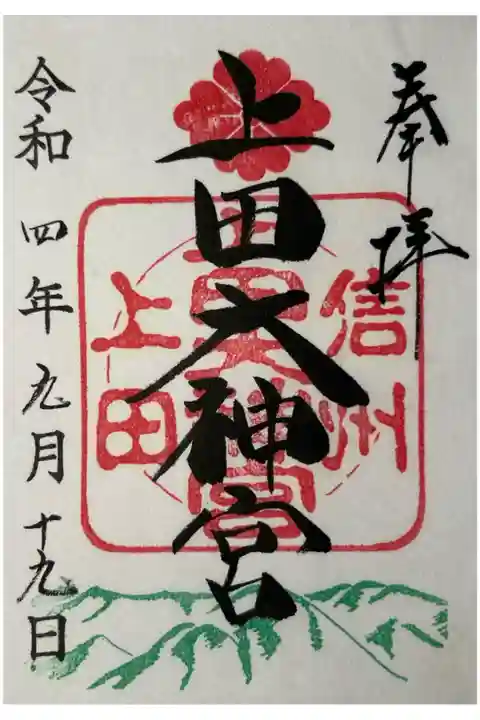 奉拝
信州
上田
上田大神宮
上田大神宮
令和四年九月十九日